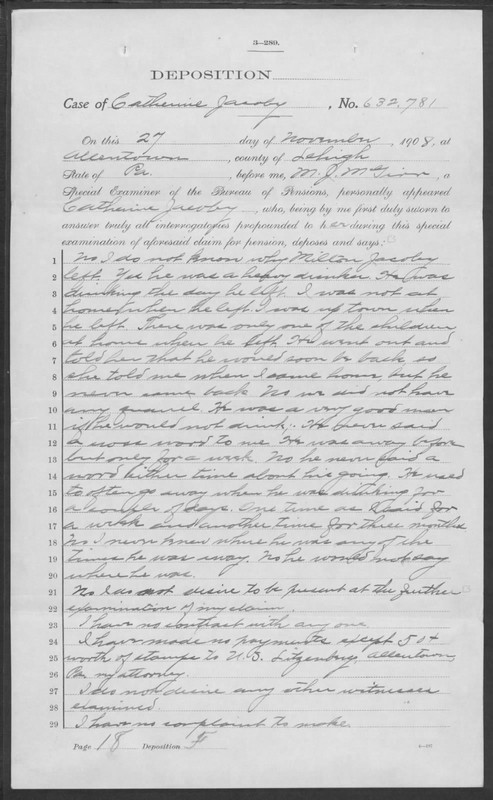 3—280.
DEPOSITION
Case of Catherine Jacoby, No. 632,781
On this 27 day of November, 1908, at
Allentown, county of Lehigh
State of Pa., before me, M. J. , a
Special Examiner of the Bureau of Pensions, personally appeared
Catherine Jacoby, who, being by me first duly sworn to
answer truly all interrogatories propounded to her during this special
examination of aforesaid claim for pension, deposes and says:
1 No I do not know why Milton Jacoby
2 left. Yes he was a heavy drinker. He was
3 drinking the day he left. I was not at
4 home when he left I was up town when
5 he left. There was only one of the children
6 at home when he left. He went out and
7 told her that he would soon be back so
8 she told me when I came home but he
9 never came back. No we did not have
10 any quarrel. He was a very good man
11 if he would not drink. He never said
12 a cross word to me. He was away before
13 but only for a week. No he never said a
14 word either time about his going. He used
15 to often go away when he was drinking for
16 a couple of days. One time as I said for
17 a week and another time for three months.
18 No I never knew where he was any of the
19 times he was away. No he would not say
20 where he was.
21 No I do not desire to be present at the further
22 examination of my claim.
23 I have no contract with any one.
24 I have made no payments except 50¢
25 worth of stamps to U. S. Litzenburg, Allentown,
26 Pa. my attorney.
27 I do not desire any other witnesses
28 examined.
29 I have no complaint to make.
Page 18 Deposition F